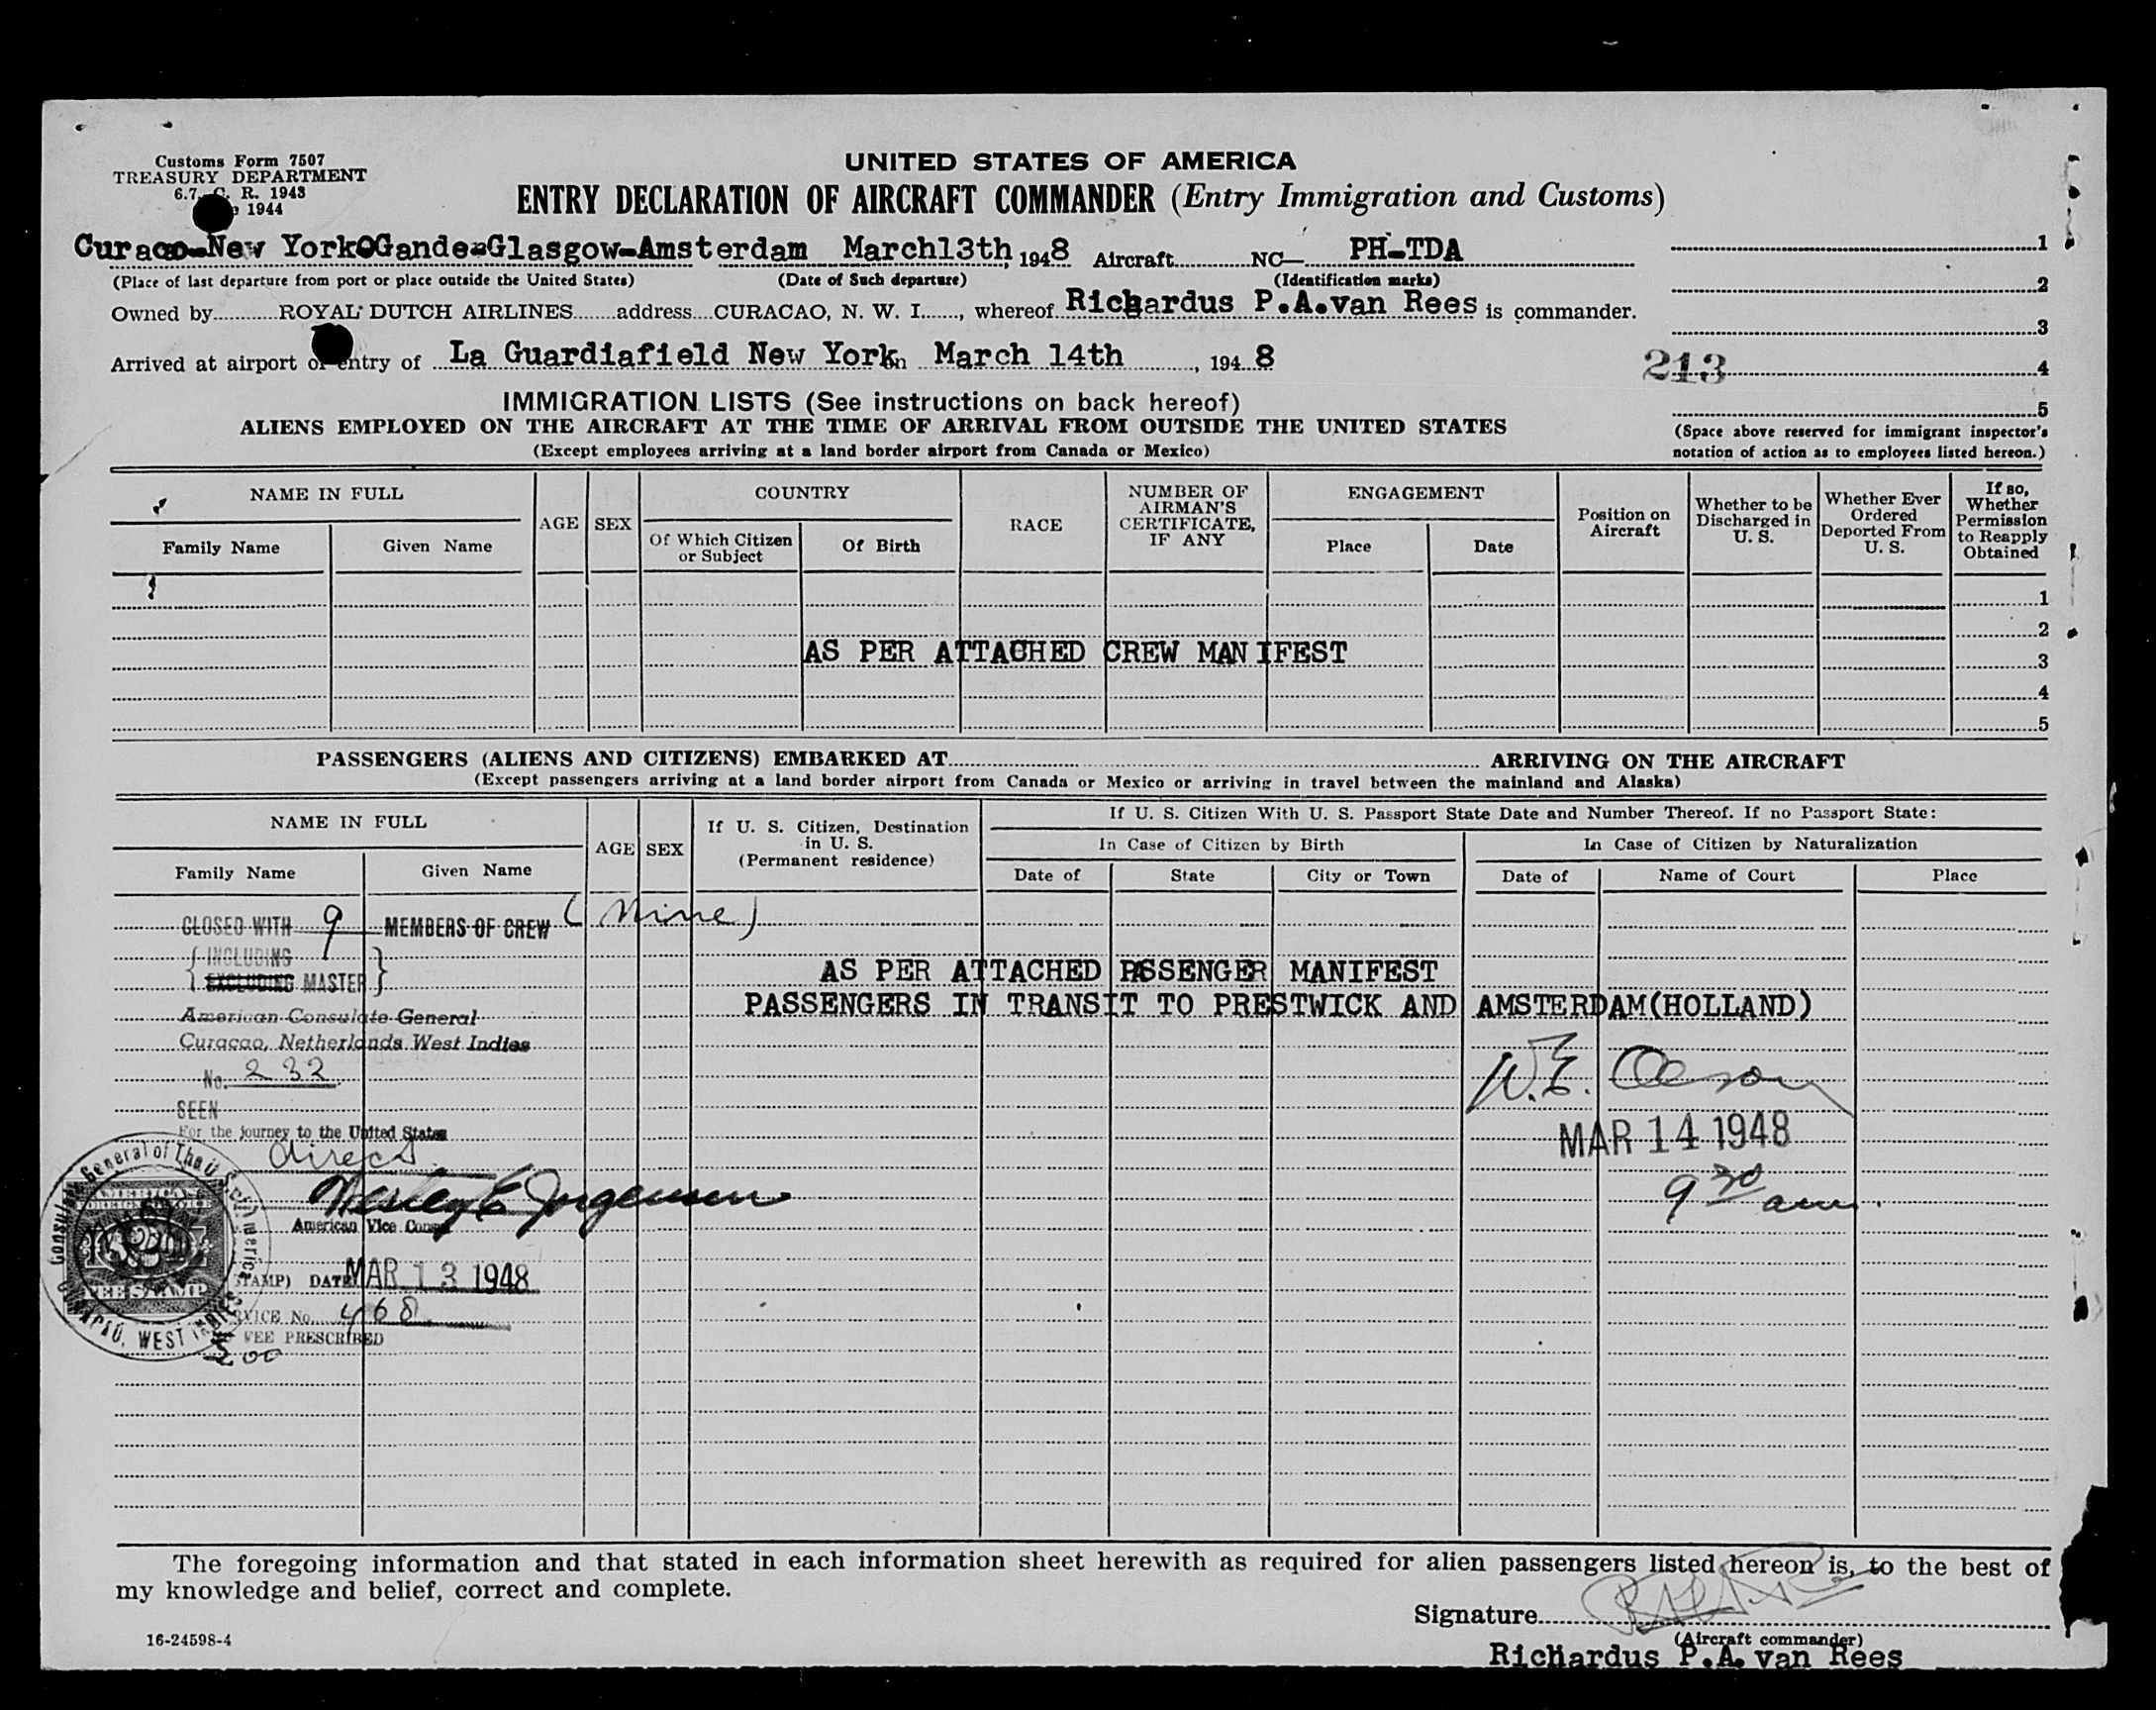 Customs Form 7507
TREASURY DEPARTMENT
6.7, C. R. 1943
1944
UNITED STATES OF AMERICA
ENTRY DECLARATION OF AIRCRAFT COMMANDER (Entry Immigration and Customs)
Curaco-New YorkOGande-Glasgow-Amsterdam March13th, 1948 Aircraft NC— PH-TDA
(Place of last departure from port or place outside the United States) (Date of Such departure) (Identification marks)
Owned by ROYAL DUTCH AIRLINES address CURACAO, N. W. I., whereof Richardus P.A.van Rees is commander.
Arrived at airport of entry of La Guardiafield New York March 14th, 1948
1
2
3
213 4
5
(Space above reserved for immigrant inspector's
notation of action as to employees listed hereon.)
IMMIGRATION LISTS (See instructions on back hereof)
ALIENS EMPLOYED ON THE AIRCRAFT AT THE TIME OF ARRIVAL FROM OUTSIDE THE UNITED STATES
(Except employees arriving at a land border airport from Canada or Mexico)
NAME IN FULL
Family Name Given Name
AGE SEX
COUNTRY
Of Which Citizen or Subject
Of Birth
RACE
NUMBER OF AIRMAN'S CERTIFICATE, IF ANY
ENGAGEMENT
Place Date
Position on Aircraft
Whether to be Discharged in U. S.
Whether Ever Ordered Deported From U. S.
If so, Whether Permission to Reapply Obtained
1
2
AS PER ATTACHED CREW MANIFEST
3
4
5
PASSENGERS (ALIENS AND CITIZENS) EMBARKED AT ARRIVING ON THE AIRCRAFT
(Except passengers arriving at a land border airport from Canada or Mexico or arriving in travel between the mainland and Alaska)
NAME IN FULL
Family Name Given Name
AGE SEX
If U. S. Citizen, Destination in U. S. (Permanent residence)
If U. S. Citizen With U. S. Passport State Date and Number Thereof. If no Passport State:
In Case of Citizen by Birth In Case of Citizen by Naturalization
Date of State City or Town Date of Name of Court Place
CLOSED WITH 9 MEMBERS OF CREW (Nine)
INCLUDING
EXCLUDING MASTER
AS PER ATTACHED PASSENGER MANIFEST
PASSENGERS IN TRANSIT TO PRESTWICK AND AMSTERDAM(HOLLAND)
American Consulate General
Curacao, Netherlands West Indies
No. 232
SEEN
For the journey to the United States
direct
Wesley E Jorgensen
American Vice Consul
(STAMP) DATE MAR 13 1948
SERVICE No. 468
FEE PRESCRIBED
AMERICAN
FOREIGN SERVICE
FEE STAMP
W.E. Oleson
MAR 14 1948
9 30 am.
The foregoing information and that stated in each information sheet herewith as required for alien passengers listed hereon is, to the best of
my knowledge and belief, correct and complete.
Signature
(Aircraft commander)
16-24598-4
Richardus P.A. van Rees